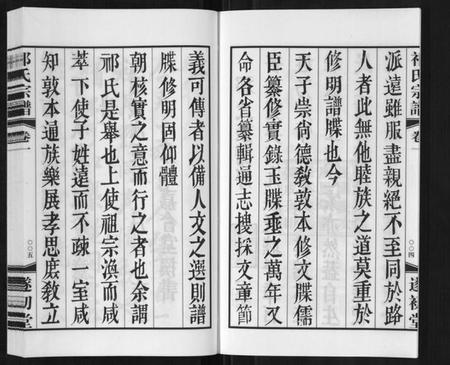 派遠雖服盡親絕不至同於路
人者此無他睦族之道莫重於
修明譜牒也今
天子崇尚德敎敦本修文牒儒
臣纂修實錄玉牒垂之萬年又
命各省纂輯通志搜採文章節
祁氏宗譜
卷一
〇〇四
義可傳者以備人文之選則譜
牒修明固仰體
朝核實之意而行之者也余謂
祁氏是舉也上使祖宗渙而咸
萃下使子姓遠而不疎一室咸
知敦本通族樂展孝思庶敎立
祁氏宗譜
卷一
〇〇五